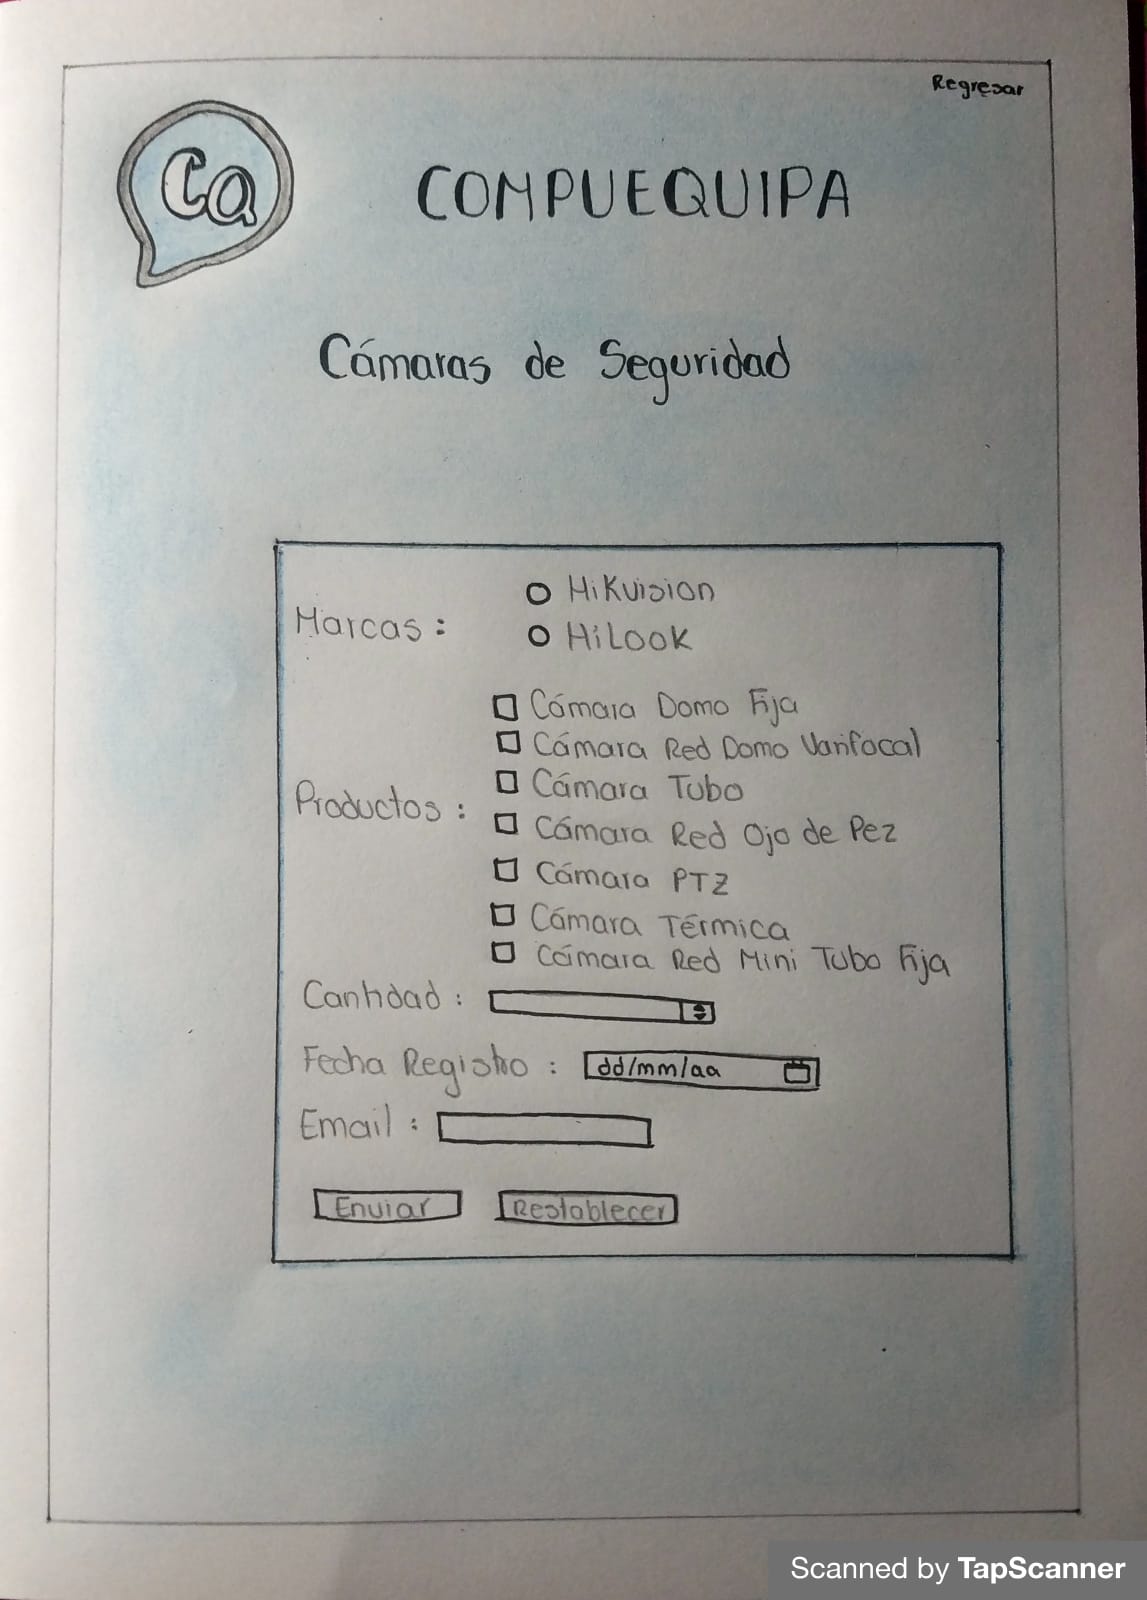 Regresar
Ca
COMPUEQUIPA
Cámaras de Seguridad
Marcas :
Hikvision
HiLook
Productos :
Cámara Domo Fija
Cámara Red Domo Varifocal
Cámara Tubo
Cámara Red Ojo de Pez
Cámara PTZ
Cámara Térmica
Cámara Red Mini Tubo Fija
Cantidad :
Fecha Registro : dd/mm/aa
Email :
Enviar Restablecer
Scanned by TapScanner